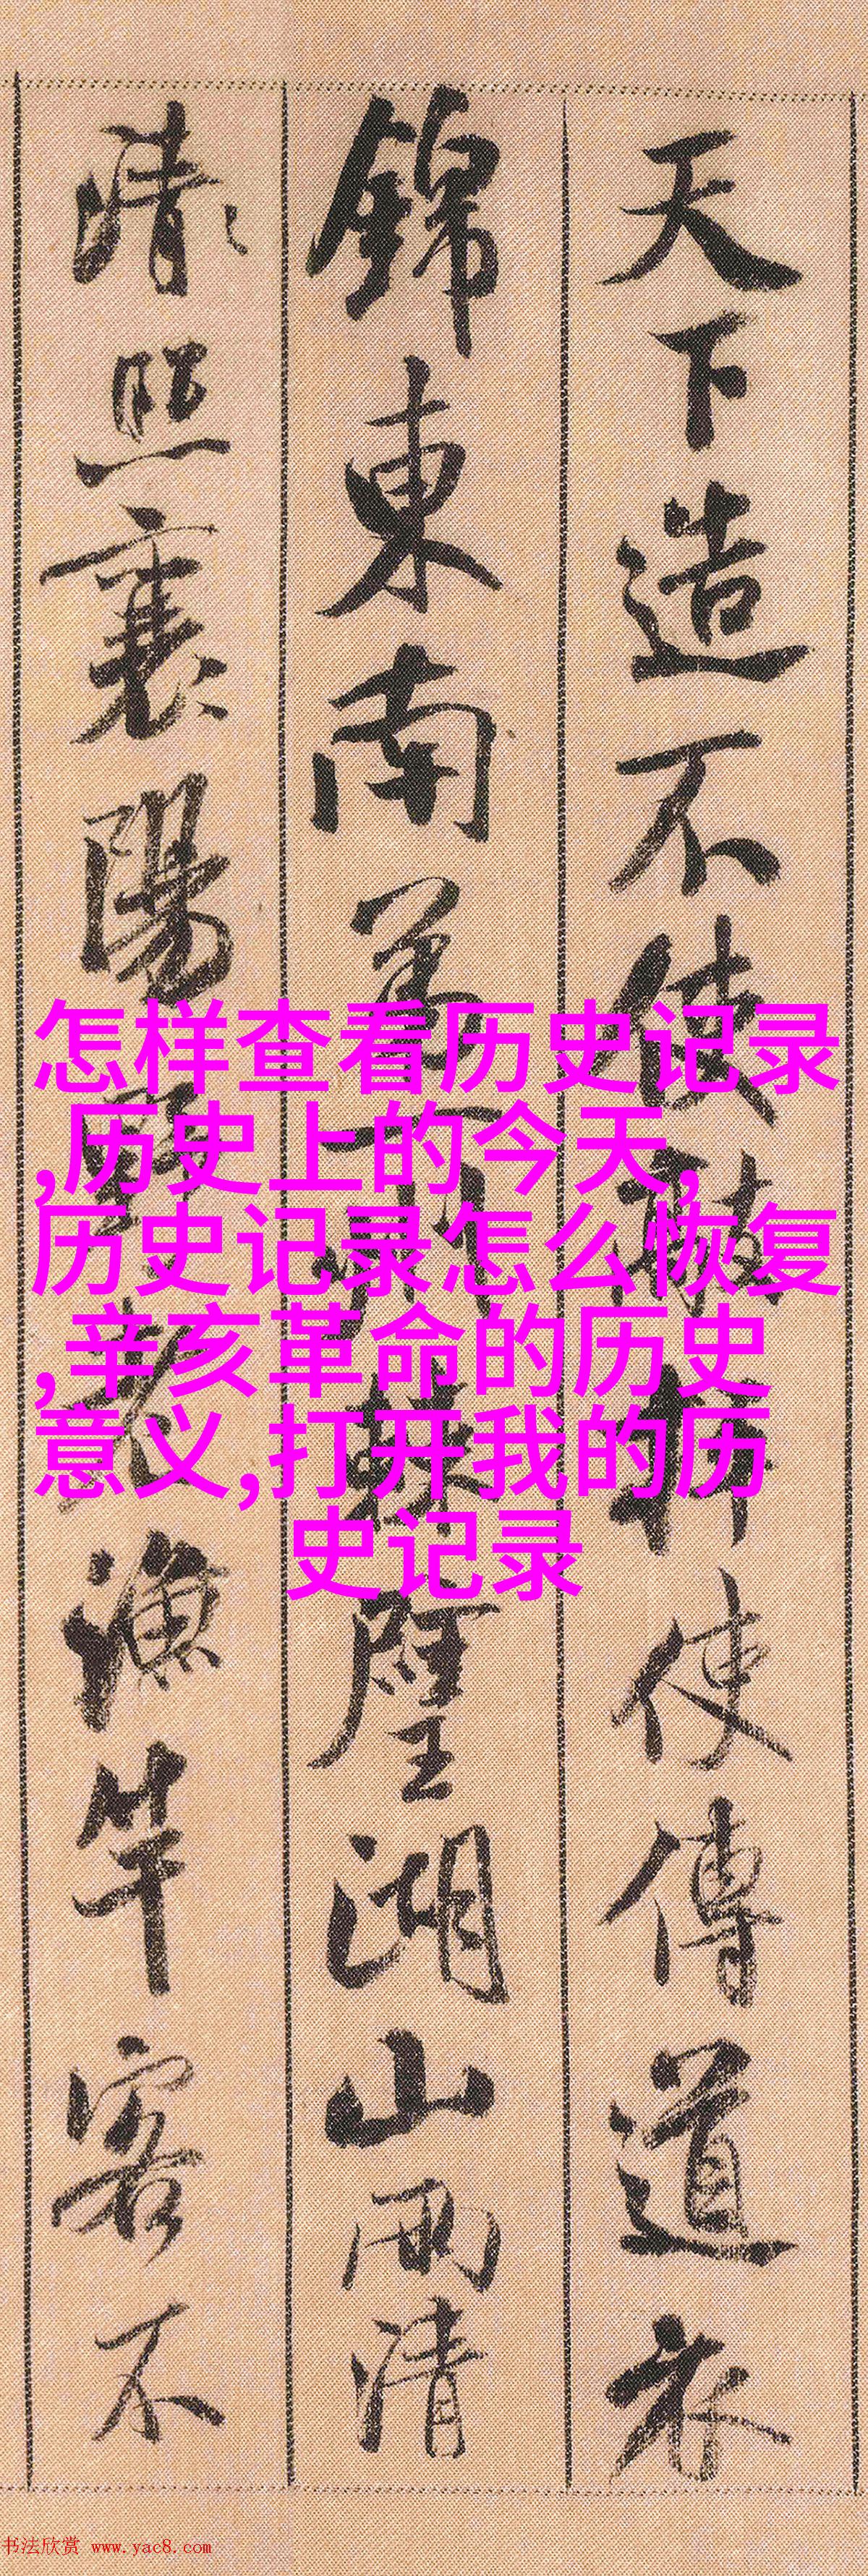 天下造不使使傳道衣
錦東南第一州棘璧湖山兩清
清照襄陽野老漁竿客不
怎样查看历史记录
,历史上的今天,
历史记录怎么恢复
,辛亥革命的历史
意义,打开我的历
史记录
书法欣赏 www.yac8.com